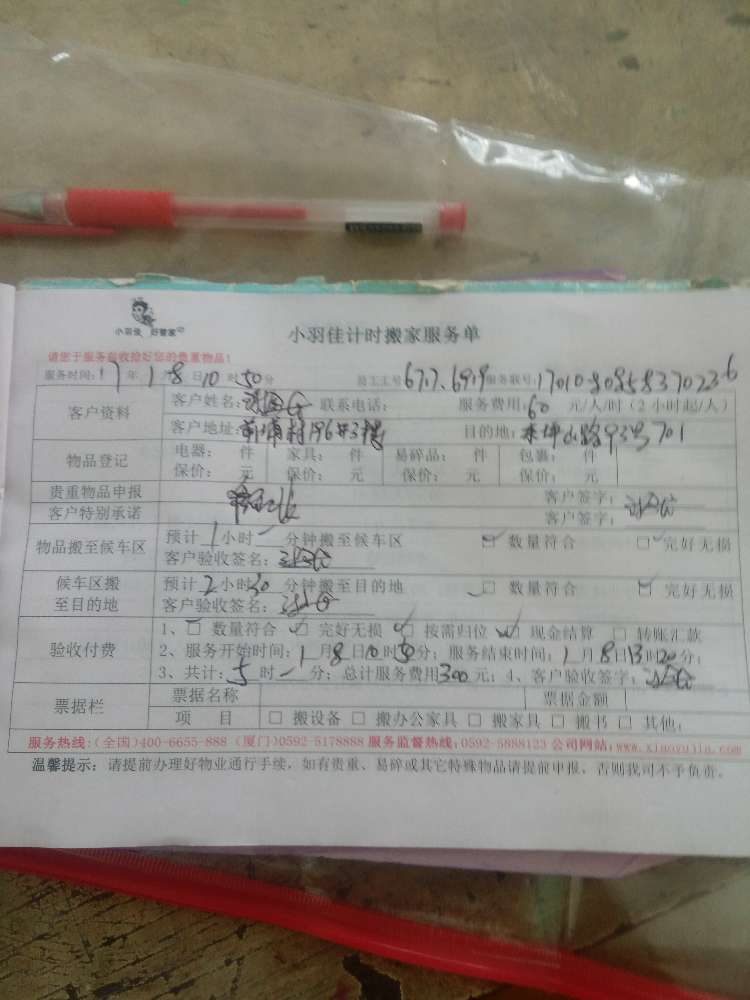 小羽佳 好管家
小羽佳计时搬家服务单
请您于服务前收拾好您的贵重物品！
服务时间：17年1月8日10时50分 员工工号 677、6919 服务联号：
客户资料 客户姓名： 联系电话： 服务费用：60 元/人/时（2小时起/人）
客户地址：前埔村196#3楼 目的地： 山路93号701
物品登记 电器： 件 家具： 件 易碎品： 件 包裹： 件
保价： 元 保价： 元 保价： 元 保价： 元
贵重物品申报 客户签字：
客户特别承诺 客户签字：
物品搬至候车区 预计1小时一分钟搬至候车区 □ 数量符合 □ 完好无损
客户验收签名：
候车区搬至目的地 预计2小时30分钟搬至目的地 □ 数量符合 □ 完好无损
客户验收签名：
验收付费 1、□ 数量符合 □ 完好无损 □ 按需归位 □ 现金结算 □ 转账汇款
2、服务开始时间：1月8日10时50分；服务结束时间：1月8日13时20分；
3、共计：5时一分；总计服务费用300元；4、客户验收签字：
票据栏 票据名称 票据金额
项 目 □ 搬设备 □ 搬办公家具 □ 搬家具 □ 搬书 □ 其他：
服务热线：（全国）400-6655-888（厦门）0592-5178888 服务监督热线：0592-5888123 公司网站：www.xiaoyujia.com
温馨提示：请提前办理好物业通行手续，如有贵重、易碎或其它特殊物品请提前申报，否则我司不予负责。